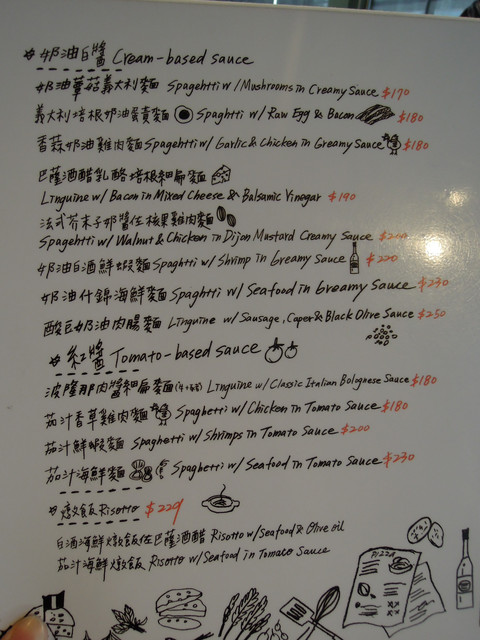 奶油白醬 Cream-based sauce
奶油蕈菇義大利麵 Spagehtti w/Mushrooms in Creamy Sauce $170
義大利培根奶油蛋黃麵 Spaghtti w/ Raw Egg & Bacon $180
香蒜奶油雞肉麵 Spagehtti w/ Garlic & Chicken in Greamy Sauce $180
巴薩酒醋乳酪培根細扁麵
Linguine w/ Bacon in Mixed Cheese & Balsamic Vinegar $190
法式芥末子奶醬佐核果雞肉麵
Spagehtti w/ Walnut & Chicken in Dijon Mustard Creamy Sauce $200
奶油白酒鮮蝦麵 Spaghtti w/ Shrimp in Greamy Sauce $220
奶油什錦海鮮麵 Spaghtti w/ Seafood in Greamy Sauce $230
酸豆奶油肉腸麵 Linguine w/ Sausage, Caper & Black Olive Sauce $250
紅醬 Tomato-based sauce
波隆那肉醬細扁麵 Linguine w/ Classic Italian Bolognese Sauce $180
茄汁香草雞肉麵 Spaghetti w/ Chicken in Tomato Sauce $180
茄汁鮮蝦麵 Spaghetti w/ Shrimps in Tomato Sauce $200
茄汁海鮮麵 Spaghetti w/ Seafood in Tomato Sauce $230
燉飯 Risotto $220
白酒海鮮燉飯佐巴薩酒醋 Risotto w/Seafood & Olive oil
茄汁海鮮燉飯 Risotto w/Seafood in Tomato Sauce
PIZZA